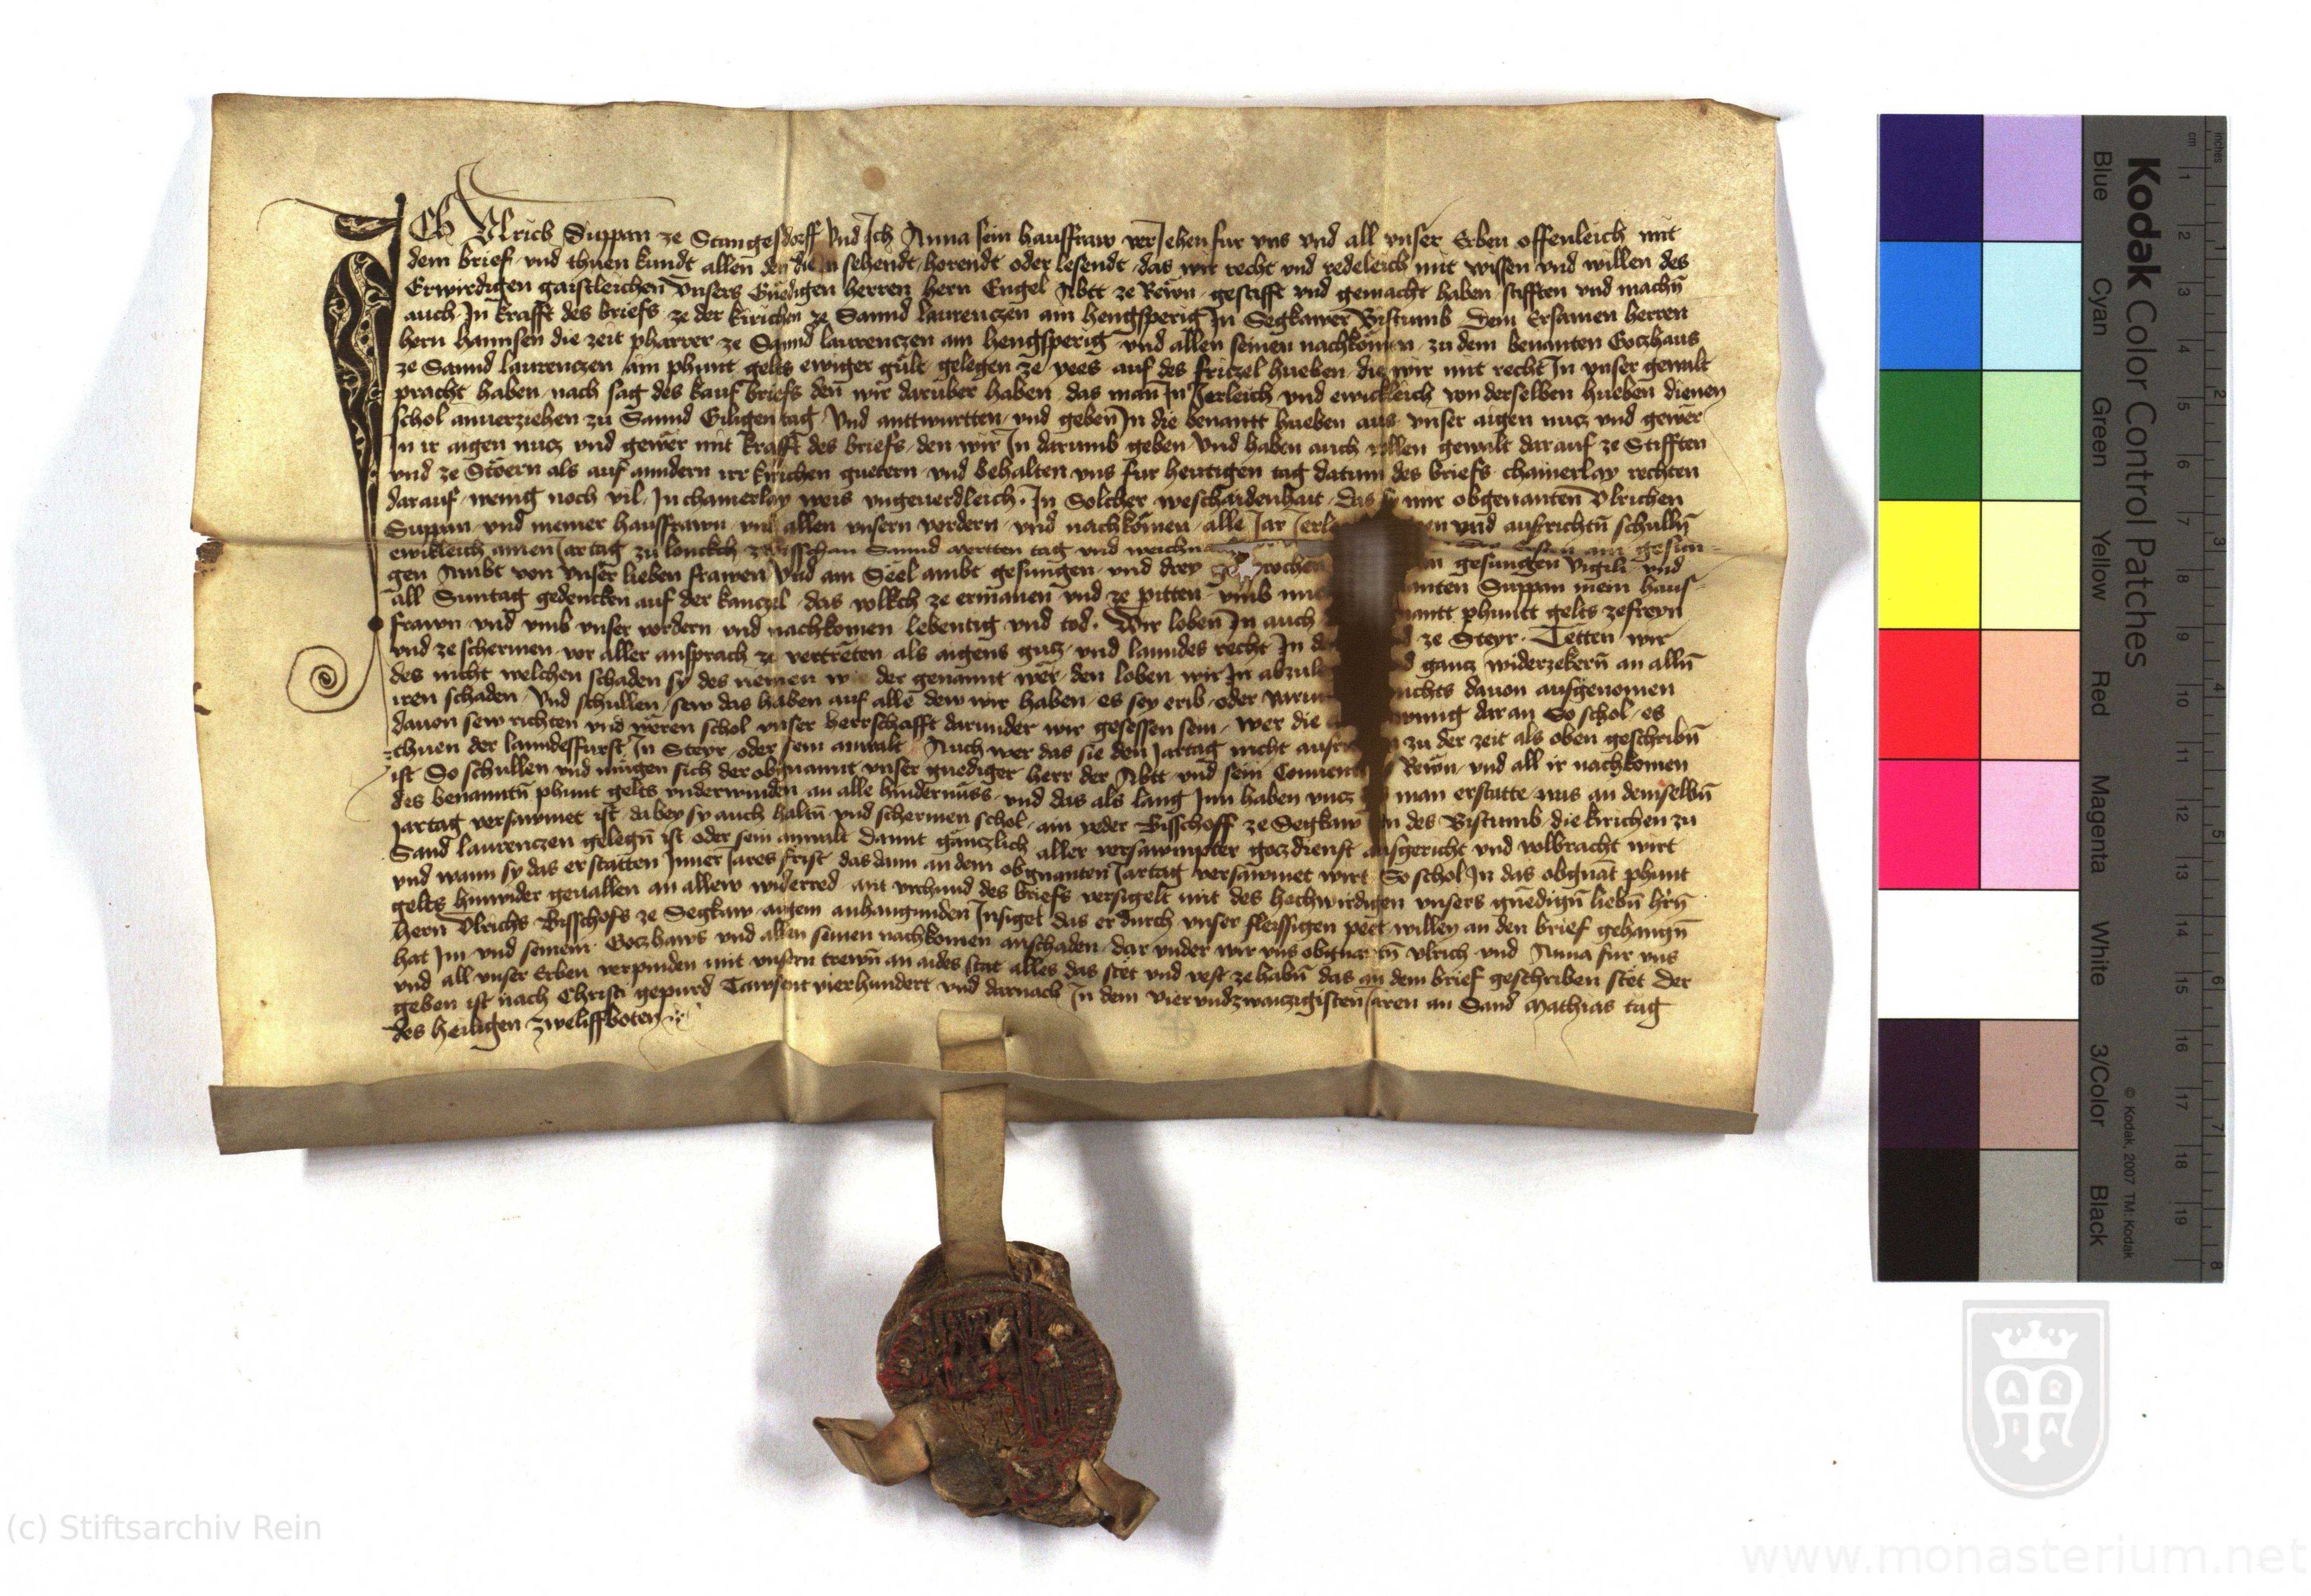 Ich Ulrich Suppan ze Stangesdorff Vnd Ich Anna sein hausfraw veriehen fur vns vnd all vnser Erben offenleich mit
dem brief vnd thuen kundt allen den die in sehendt horendt oder lesendt das wir recht vnd redeleich mit wissen vnd willen des
Erwirdigen gaistleichen vnsers Gnedigen herren hern Engel Abtt ze Rewn gestifft vnd gemacht haben stifften vnd machn̄
auch In krafft des briefs ze der kirichen ze Sannd laurenczen am hengsperig In Segkawer Bistumb Dem Ersamen herren
hern hannsen die zeit pharrer ze Sannd laurenczen am hengsperig vnd allen seinen nachkomen zu dem benanten Goczhaus
ze Sannd laurenczen ain phunt gelts ewiger gult gelegen ze vees auf des friczel hueben die wir mit recht In vnser gewalt
pracht haben nach sag des kauf briefs den wir daruber haben das man In Jerleich vnd ewickleich von derselben hueben dienen
schol anuerziehen zu Sannd Giligen tag Vnd anttwurtten vnd geben In die benantt hueben aus vnser aigen nucz vnd gewer
In ir aigen nucz vnd gewer mit krafft des briefs den wir In darumb geben Vnd haben auch vollen gewalt darauf ze Stifften
vnd ze Stoern als auf anndern irr kirichen guetern vnd behalten vns fur hewtigen tag datum des briefs chainerlay rechten
darauf wenig noch vil In chainerlay weis vngeuerdleich In Solcher weschaidenhait Das sy mir obgenanten Ulrichen
Suppan vnd meiner hausfrawn vnd allen vnsern vordern vnd nachkomen alle Jar en vnd ausrichtn̄ schulln̄
ewikleich ainen Jartag zu zwisschen Sannd mertten tag vnd ain gesun
gen Ambt von vnser lieben frawen Vnd ain Seel ambt gesungen vnd drey gesungen Vigili vnd
all Suntag gedencken auf der kanczel das volkch ze ermanen vnd ze pitten vmb Suppan mein haus
frawn vnd vmb vnser vordern vnd nachkomen lebentig vnd tod Wir loben In auch phuntt gelts zefreyn
vnd ze schermen vor aller ansprach ze vertreten als aigens gutz vnd lanndes recht In ze Steyr Tetten wir
des nicht welchen schaden sy des nemen wie der genannt wer den loben wir In ganz widerzekern̄ an alln̄
iren schaden Vnd schullen sew das haben auf alle dew wir haben es sey erib oder nichts dauon ausgenomen
dauon sew richten vnd weren schol vnser herrschafft darunder wir gesessen sein wer die daran So schol es
thuen der lanndesfurst In Steyr oder sein anwalt Auch wer das sie den Jartag nicht zu der zeit als oben geschribn̄
ist So schullen vnd mugen sich der obgnannt vnser gnediger herr der Abtt vnd sein Conuent Rewn vnd all ir nachkomen
des benanntn̄ phunt gelts vnderwinden an alle hindernuss vnd das als lang Inn haben vncz man erstatte was an demselbn̄
Jartag versawmet ist dabey sy auch haltn̄ vnd schermen schol ain yeder Bisschoff ze Segkaw In des Bistumb die kirichen zu
Sand laurenczen gelegn̄ ist oder sein anwalt Damit ganczlich aller versawmpter goczdienst ausgericht vnd volbracht wirt
vnd wann sy das erstatten Inner Jares frist das dann an dem obgnanten Jartag versawmet wirt So schol In das obgnāt phunt
gelts hinwider geuallen an allew widerred mit vrchund des briefs versigelt mit des hochwirdigen vnsers gnedign̄ liebn̄ hrn̄
hern Ulrichs Bisschofs ze Segkaw aigem anhangunden Insigel das er durch vnser fleissigen pett willen an den brief gehangn̄
hat Im vnd seinem Goczhaws vnd allen seinen nachkomen anschaden dar vnder wir vns obgnantn̄ Ulrich vnd Anna fur vns
vnd all vnser Erben verpinden mit vnsern trewn̄ an aides stat alles das stet vnd vest ze habn̄ das an dem brief geschriben stet Der
geben ist nach Christi gepurd Tawsent vierhundert vnd darnach In dem vierundzwanzigisten Jaren an Sand Mathias tag
des heiligen zweliffboten
Kodak Color Control Patches
Blue Cyan Green Yellow Red Magenta White 3/Color Black
© Kodak, 2007 TM: Kodak
cm 1 2 3 4 5 6 7 8 9 10 11 12 13 14 15 16 17 18 19
inches 1 2 3 4 5 6 7 8
(c) Stiftsarchiv Rein
www.monasterium.net